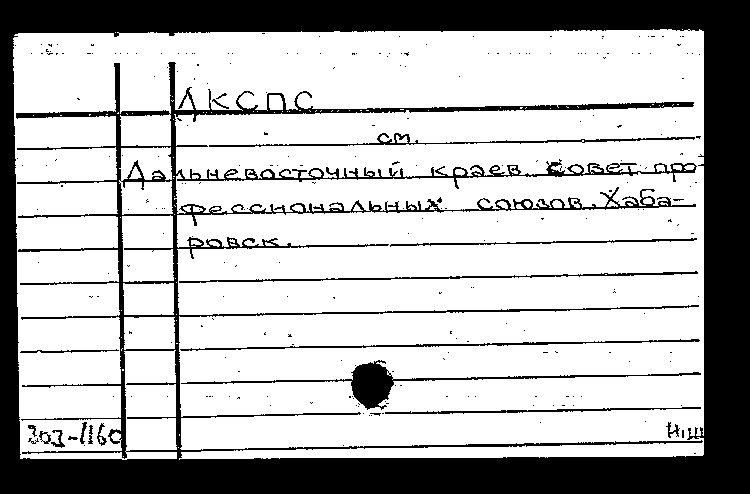 ДКСПС
см.
Дальневосточный краев. совет про-
фессиональных союзов. Хаба-
ровск.
303-1160